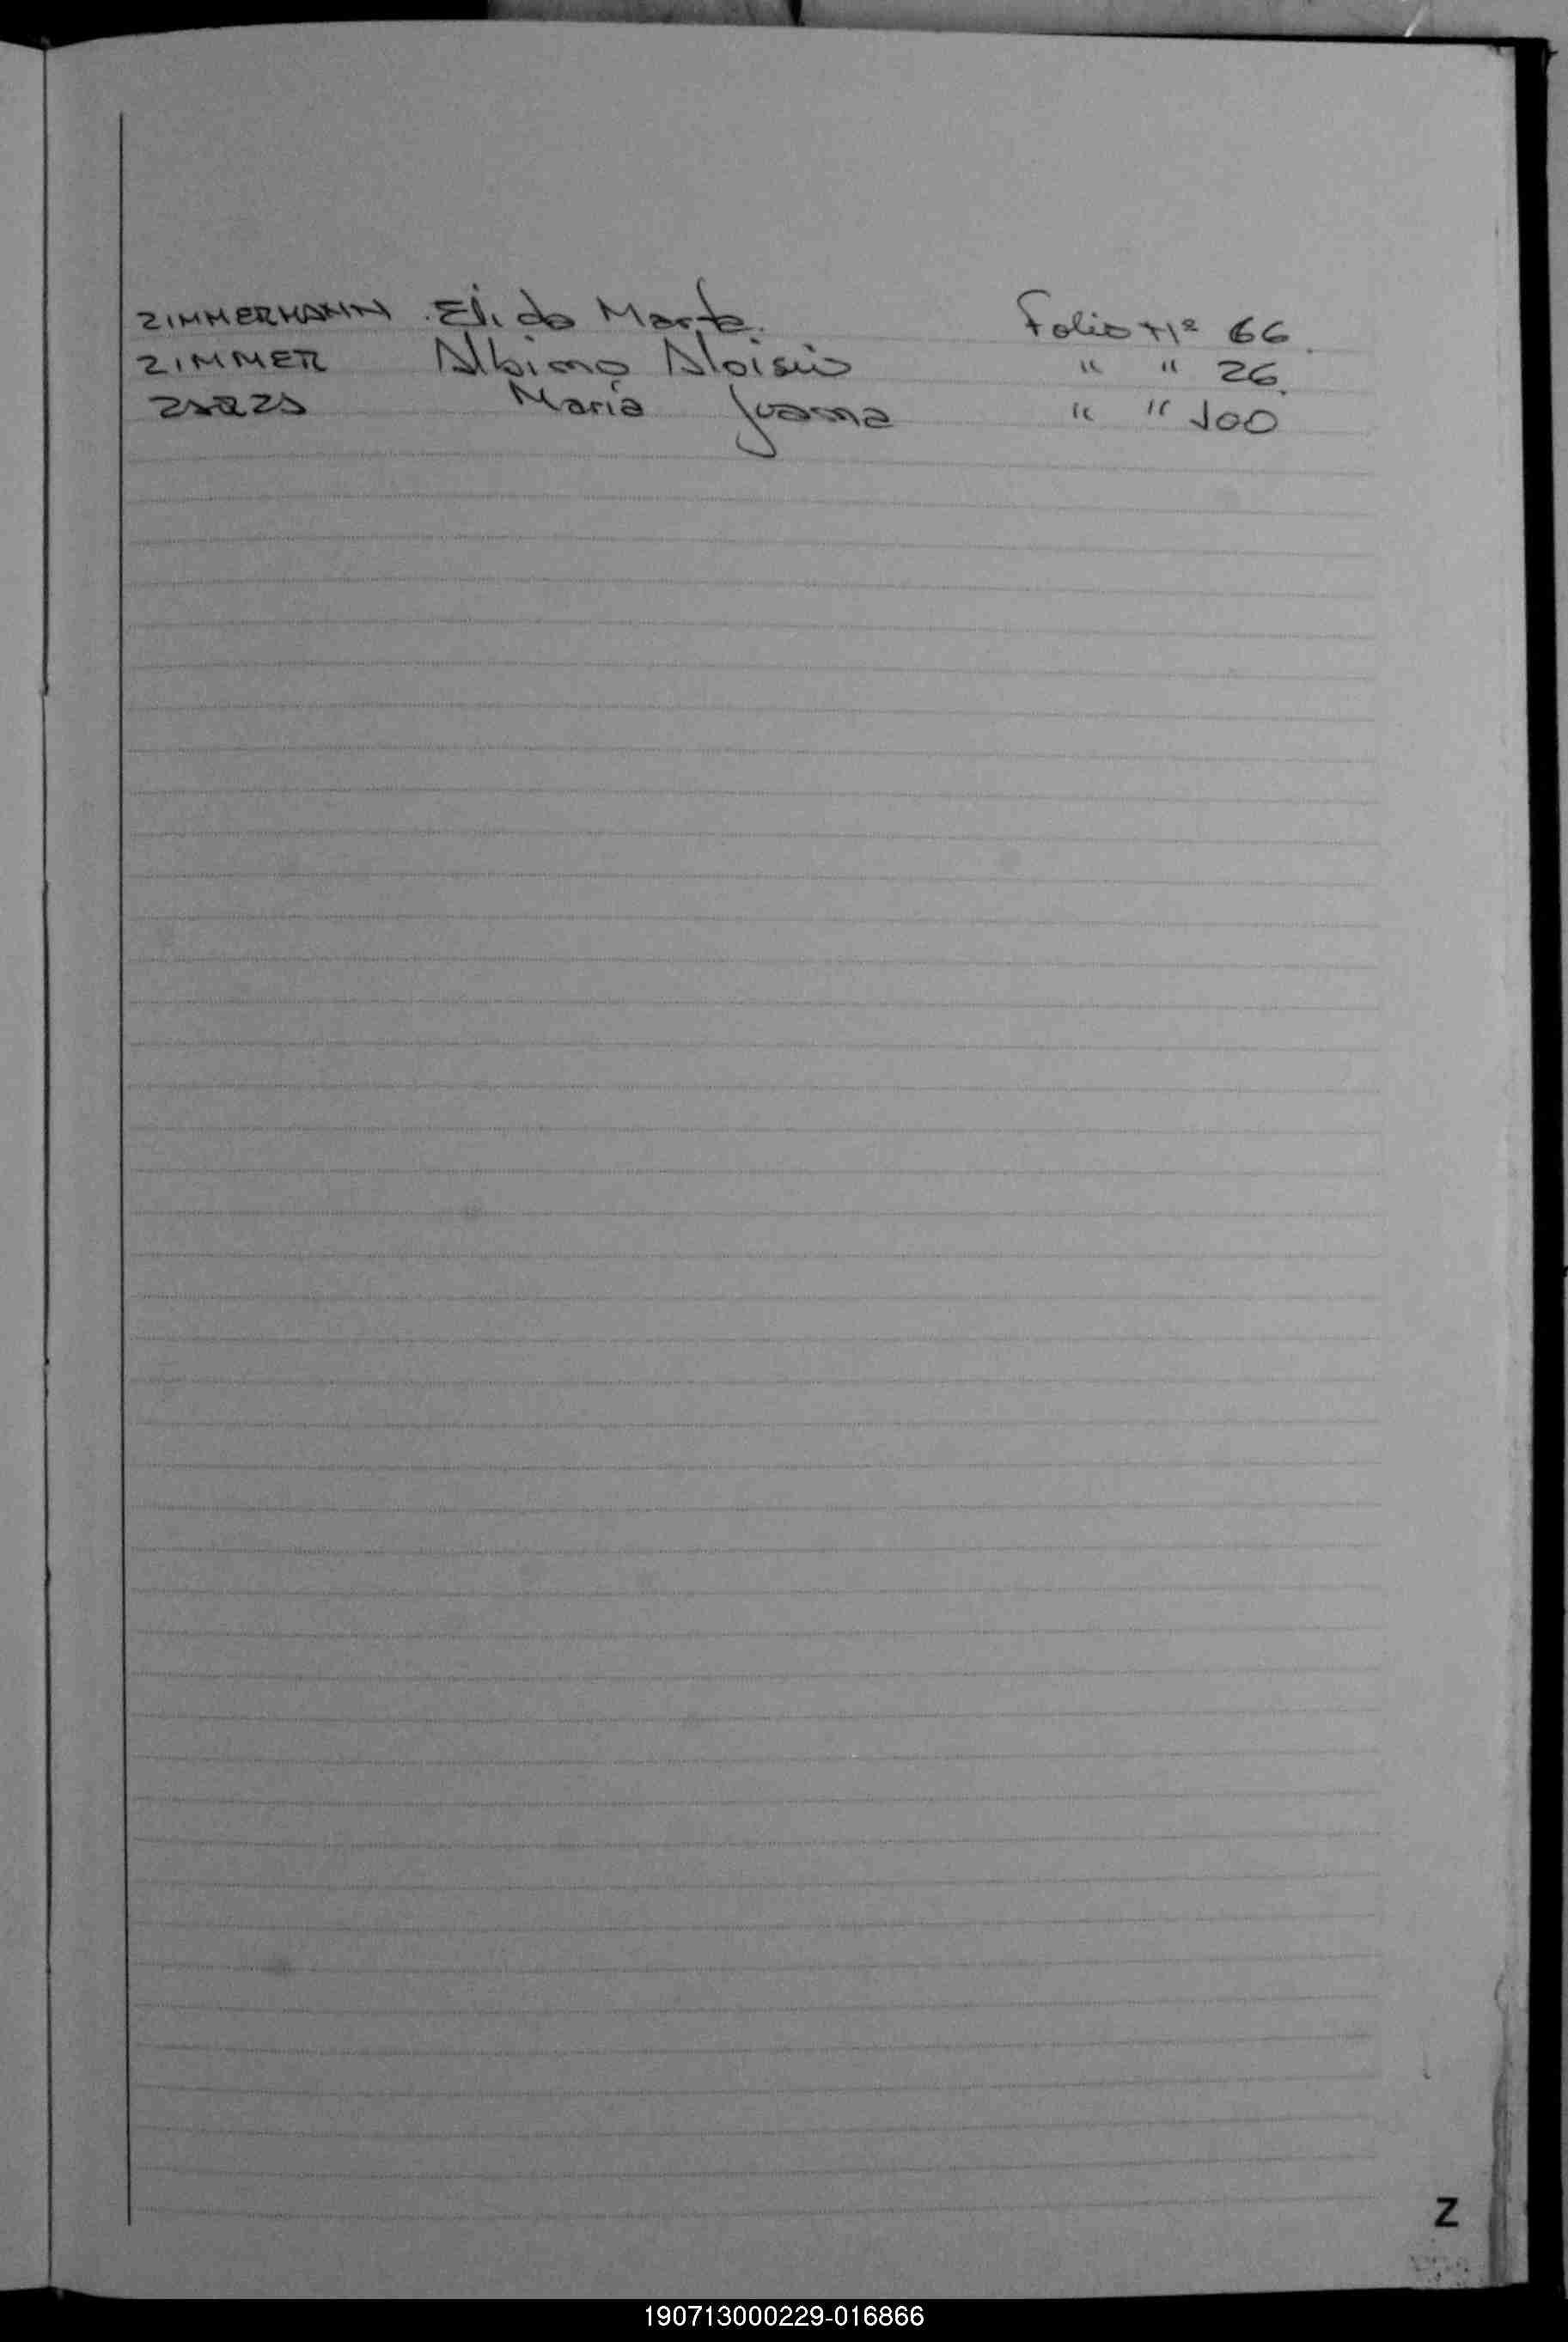 ZIMMERMANN Elida Marta. Folio Nº 66.
ZIMMER Albino Aloisio " " 26.
María Juana " " 100
Z
190713000229-016866